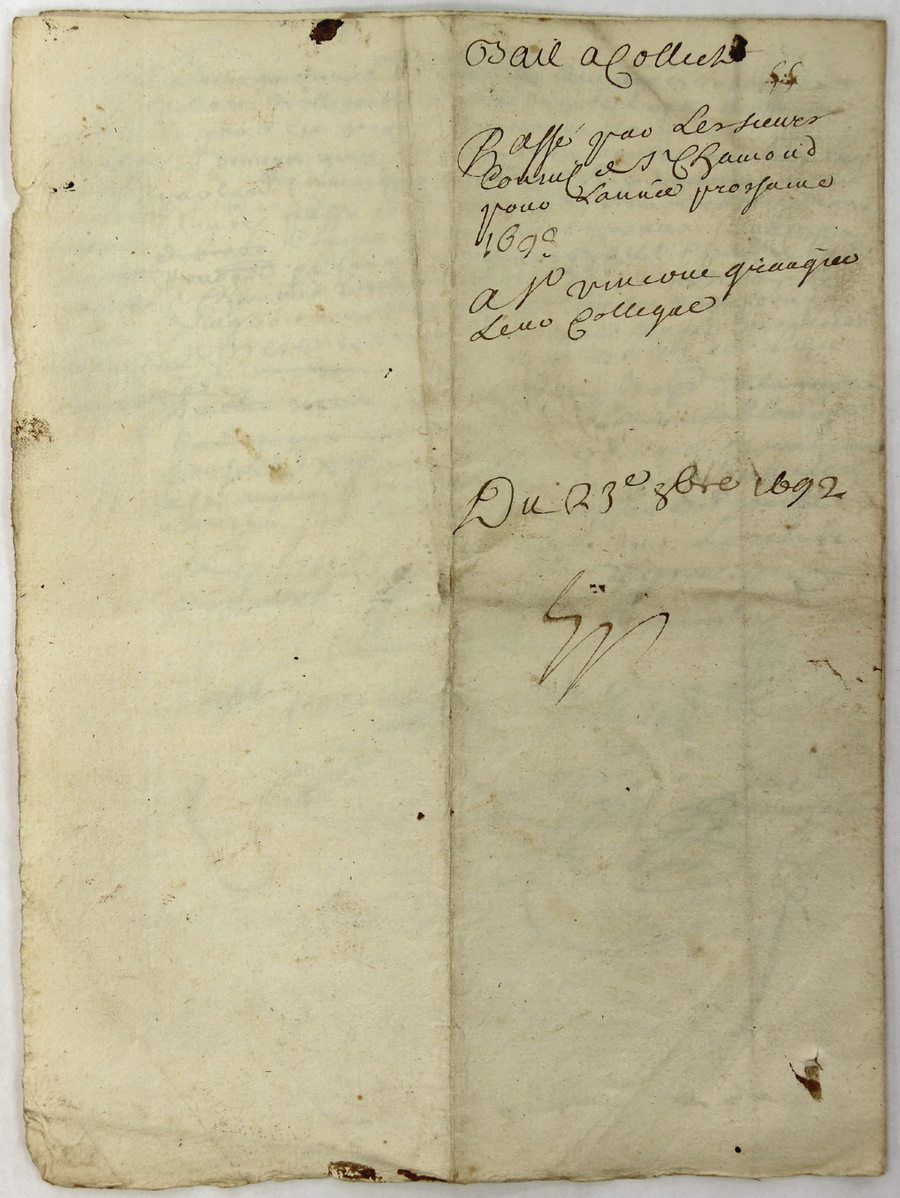 Bail a Collecte
Passé par Les sieurs
Consulz de St Chamond
pour L'année prochaine
1693
a sr vincent grangier
Leur Collegue
Du 23e 9bre 1692